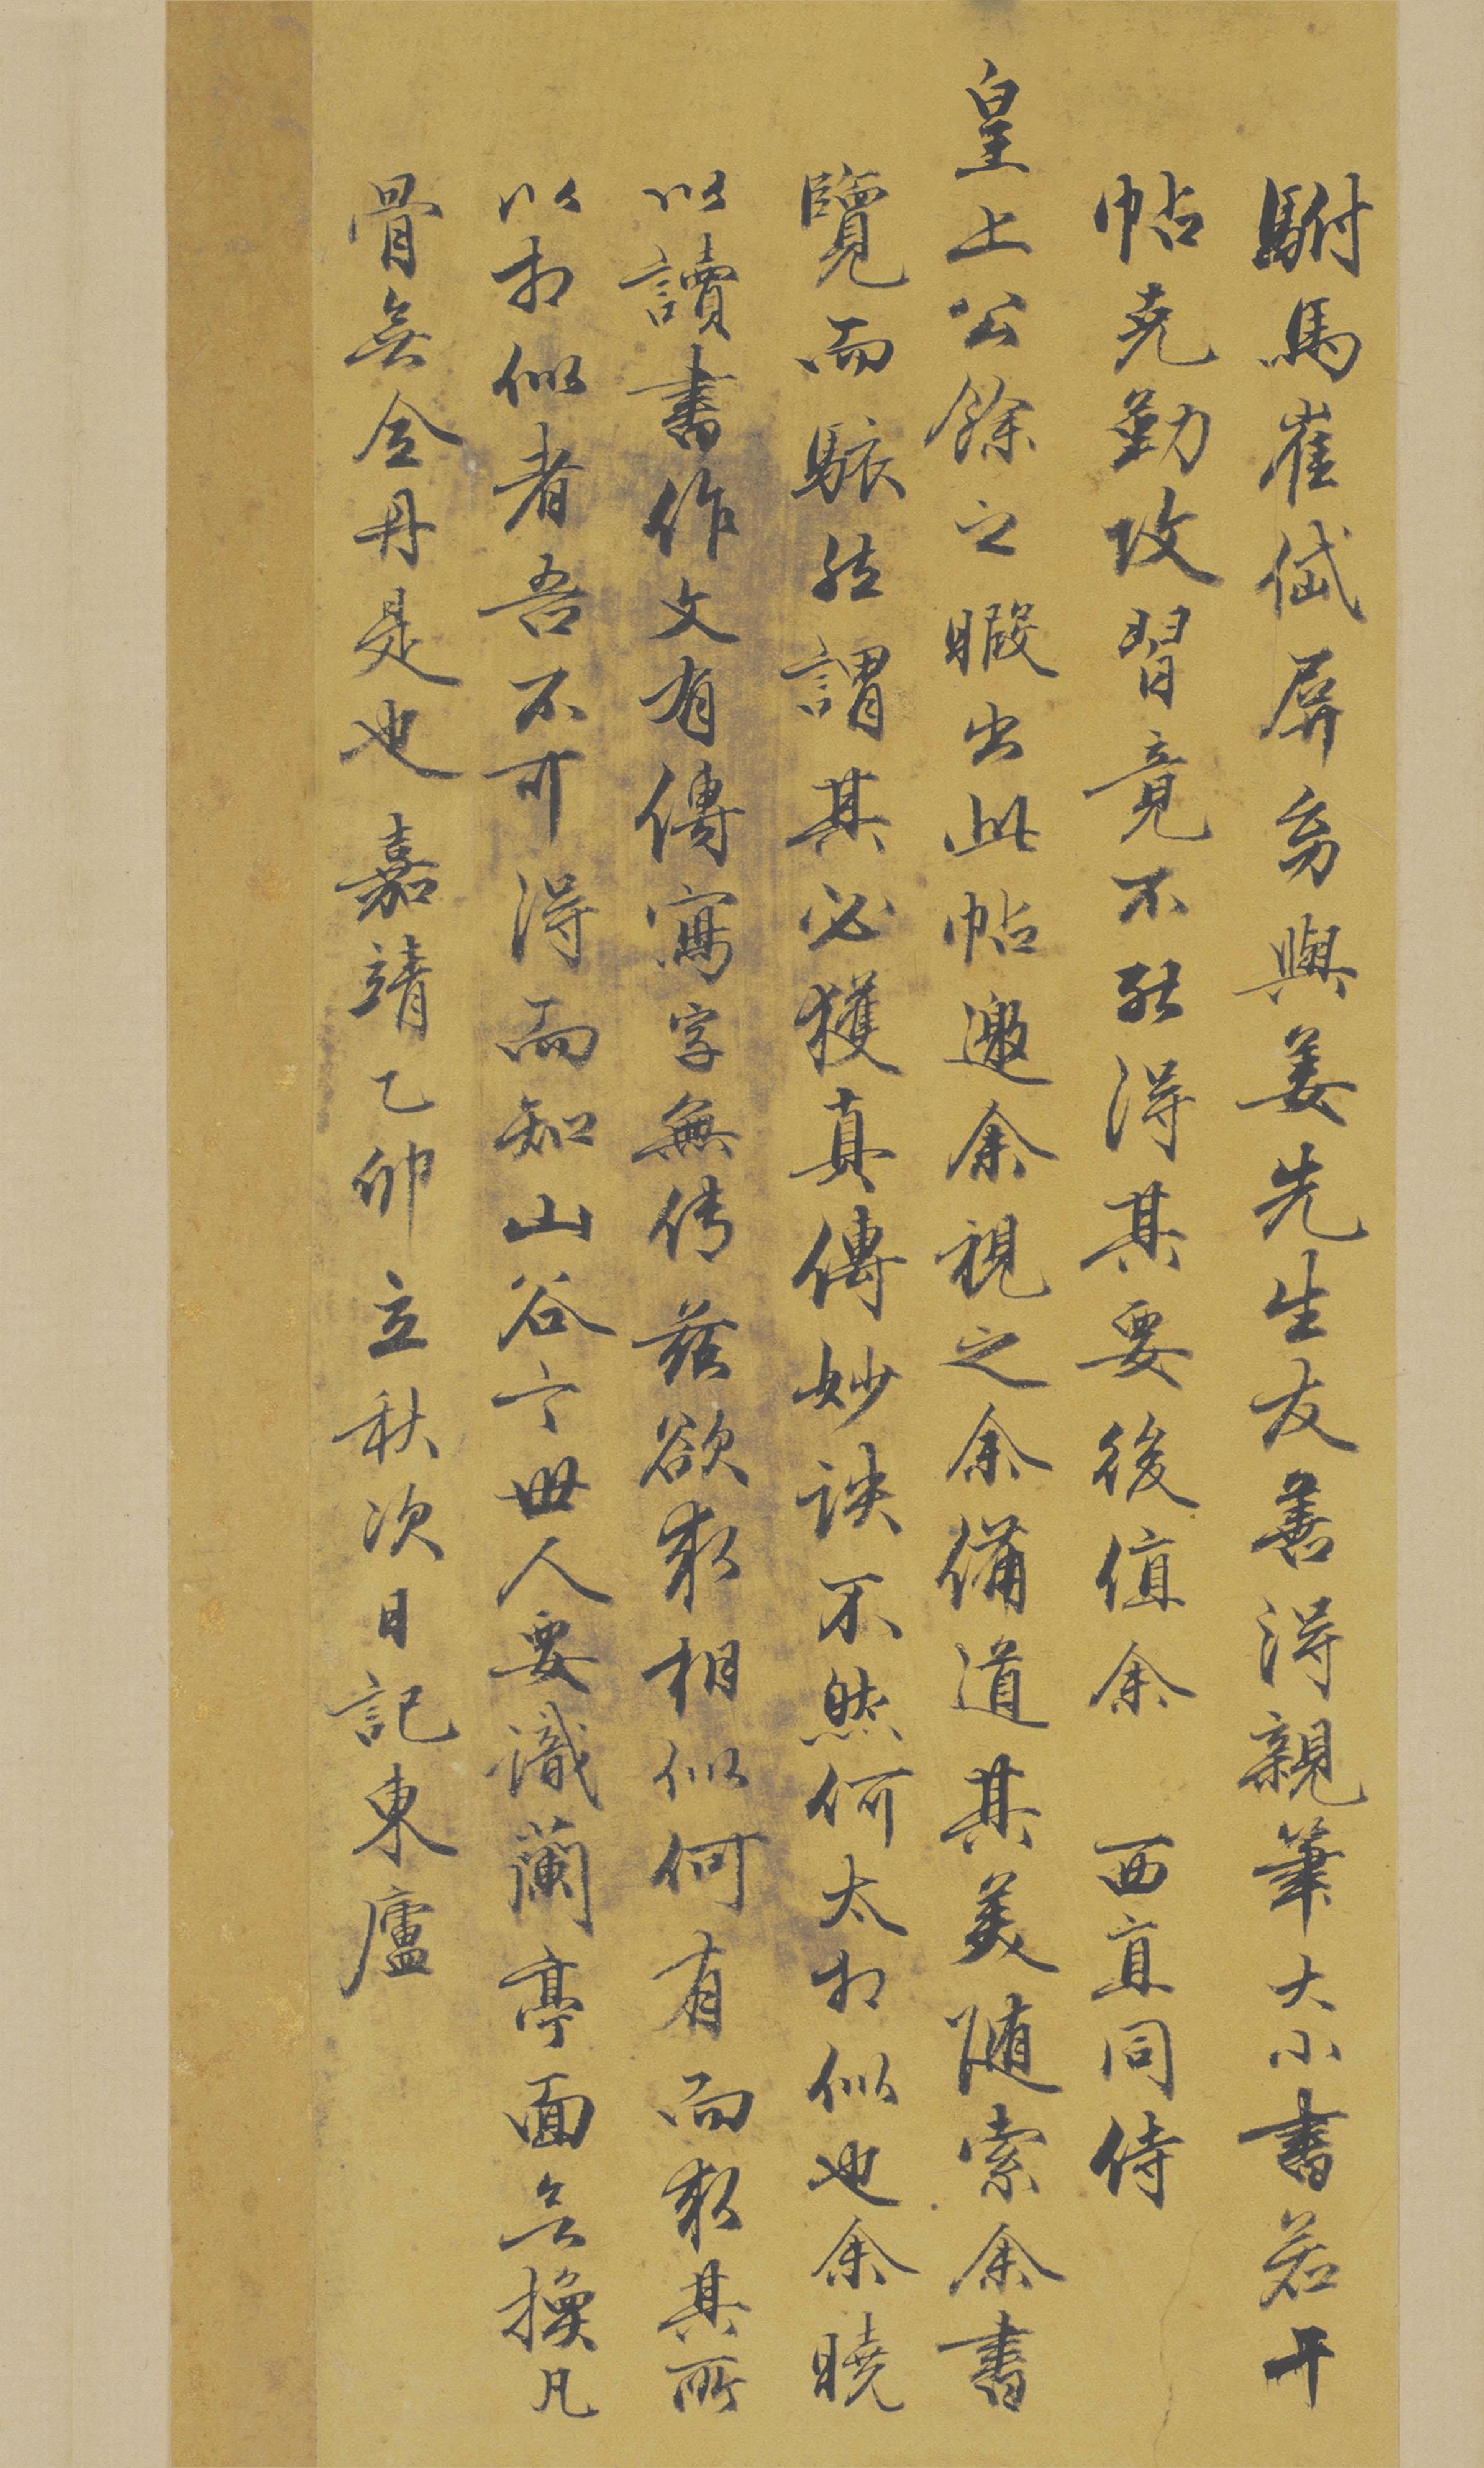 駙馬崔岱屏男與姜先生友善得親筆大小書若干
帖克勤攻習竟不能得其要後值余 西直同侍
皇上公餘之暇出此帖邀余視之余備道其美隨索余書
覽而駭然謂其必獲真傳妙訣不然何太相似也余曉
以讀書作文有傳寫字無傳茲欲求相似何有而求其所
以相似者吾不可得而知山谷云世人要識蘭亭面無換凡
骨無金丹是也嘉靖乙卯立秋次日記東廬